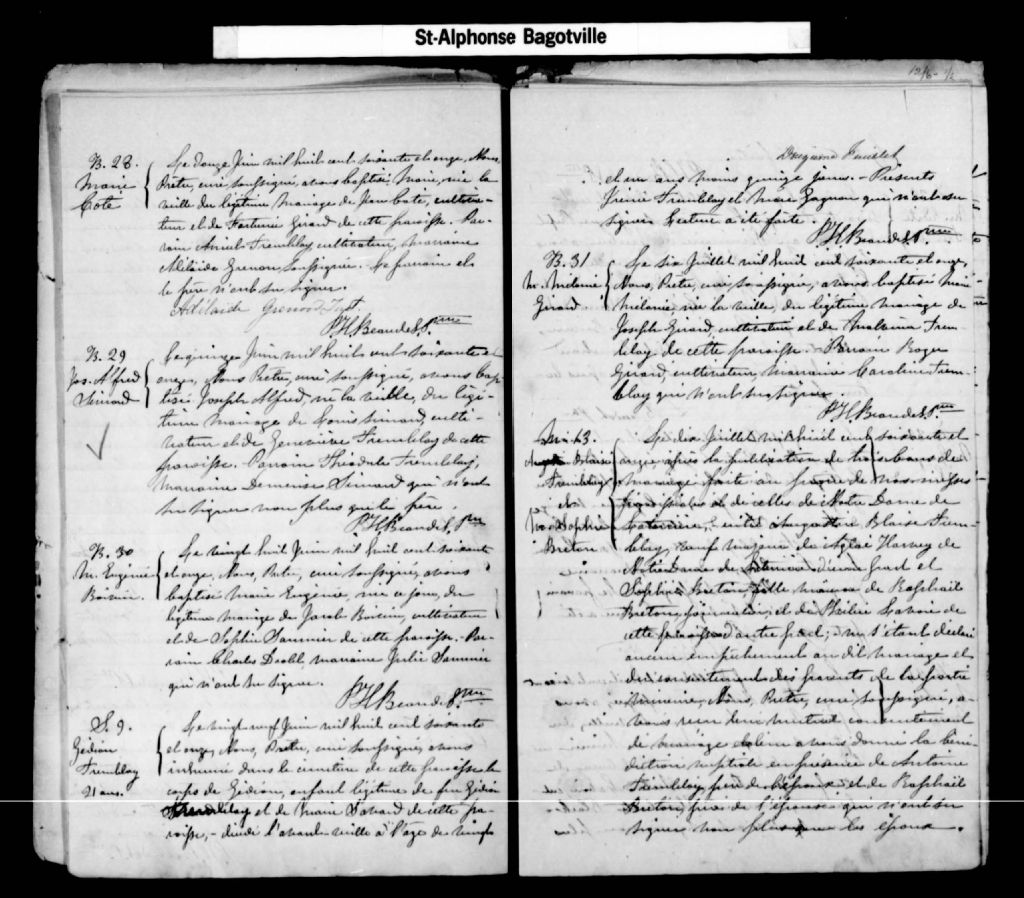 St-Alphonse Bagotville
B. 28.
Marie
Cote
Le douze Juin mil huit cent soixante et onze, Nous
Prêtre, curé soussigné, avons baptisé Marie, née la
veille du légitime mariage de Jean Coté, cultiva-
teur et de Fortunée Girard de cette paroisse. Par-
rain Tremblay, cultivateur, marraine
Adélaide Grenon, soussignée. Le parrain et
le père n'ont su signer.
Adélaide Grenon
B. 29
Jos. Alfred
Simard
Le quinze Juin mil huit cent soixante et
onze, Nous Prêtre, curé soussigné, avons bap
tisé Joseph Alfred, né la veille, du légi-
time mariage de Louis Simard, culti-
vateur et de Geneviève Tremblay de cette
paroisse. Parrain Théodule Tremblay,
Marraine Demerise Simard qui n'ont
su signer non plus que le père.
B. 30
M. Eugénie
Boivin.
Le vingt huit Juin mil huit cent soixante
et onze, Nous, Prêtre, curé soussigné, avons
baptisé Marie Eugénie, née ce jour, du
légitime mariage de Jacob Boivin, cultivateur
et de Sophie de cette paroisse. Par-
rain Charles marraine Julie
qui n'ont su signer.
S. 9.
Gédéon
Tremblay
21 ans.
Le vingt neuf Juin mil huit cent soixante
et onze, Nous, Prêtre, curé soussigné, avons
inhumé dans le cimetière de cette paroisse le
corps de Gédéon, enfant légitime de feu Gédéon
Tremblay et de Marie Savard de cette pa-
roisse, - décédé l'avant-veille à l'âge de vingt
et un ans moins quinze jours. - Présents
Tremblay et Gagnon qui n'ont su
signer. Lecture a été faite.
B. 31
M. Mélanie
Girard
Le six Juillet mil huit cent soixante et onze,
Nous, Prêtre, curé soussigné, avons baptisé Marie
Mélanie, née la veille, du légitime mariage de
Joseph Girard, cultivateur et de Malvina Trem-
blay de cette paroisse. Parrain Roger
Girard, cultivateur, Marraine Caroline Trem-
blay qui n'ont su signer.
M. 13.
Blaise
Tremblay
et
Sophie
Breton
Le dix Juillet mil huit cent soixante et
onze, après la publication de trois bans de
mariage faite au prône de nos messes
paroissiales et de celles de Notre Dame de
Laterrière, entre Augustin Blaise Trem-
blay, veuf majeur de Aglaé Harvey de
Notre Dame de Laterrière d'une part et
Sophie Breton, fille mineure de Raphaël
Breton, journalier, et de Savoie de
cette paroisse d'autre part; ne s'étant déclaré
aucun empêchement au dit mariage et
du consentement des parents de la partie
mineure, Nous, Prêtre, curé soussigné, a-
vons reçu leur mutuel consentement
de mariage et leur avons donné la béné-
diction nuptiale en présence de Antoine
Tremblay, père de l'époux et de Raphaël
Breton, père de l'épouse qui n'ont su
signer non plus que les époux.